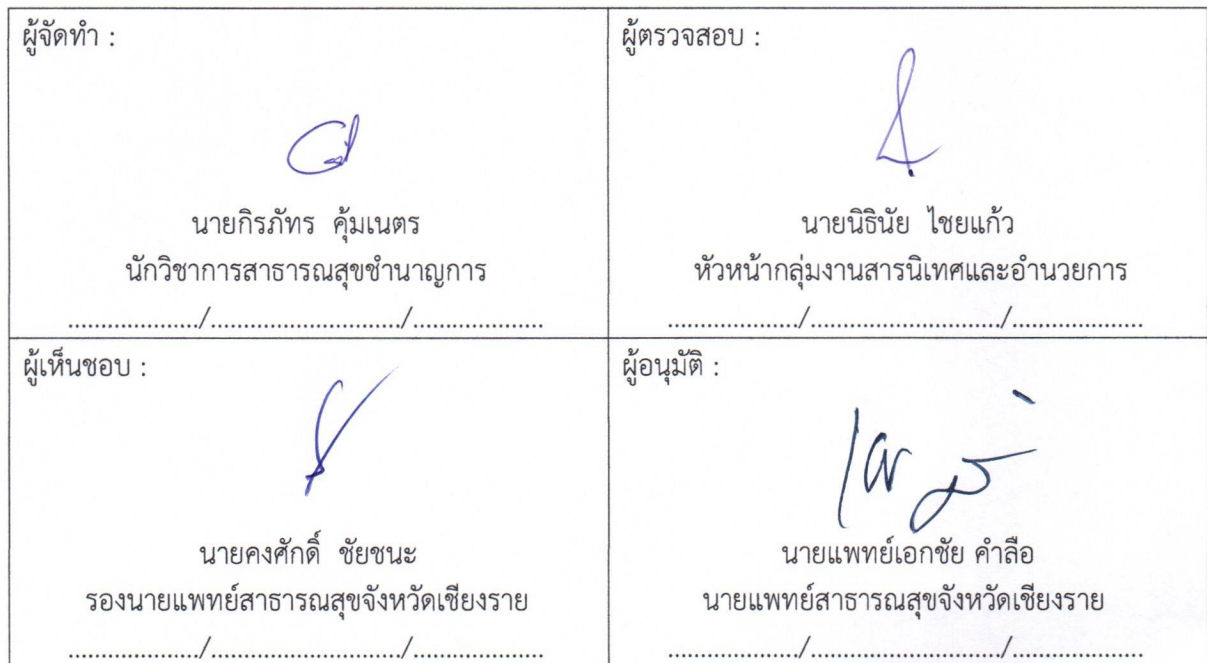 ผู้จัดทำ :
นายกิรภัทร คุ้มเนตร
นักวิชาการสาธารณสุขชำนาญการ
................../.........................../..................
ผู้ตรวจสอบ :
นายนิธินัย ไชยแก้ว
หัวหน้ากลุ่มงานสารนิเทศและอำนวยการ
................../.........................../..................
ผู้เห็นชอบ :
นายคงศักดิ์ ชัยชนะ
รองนายแพทย์สาธารณสุขจังหวัดเชียงราย
................../.........................../..................
ผู้อนุมัติ :
นายแพทย์เอกชัย คำลือ
นายแพทย์สาธารณสุขจังหวัดเชียงราย
................../.........................../..................